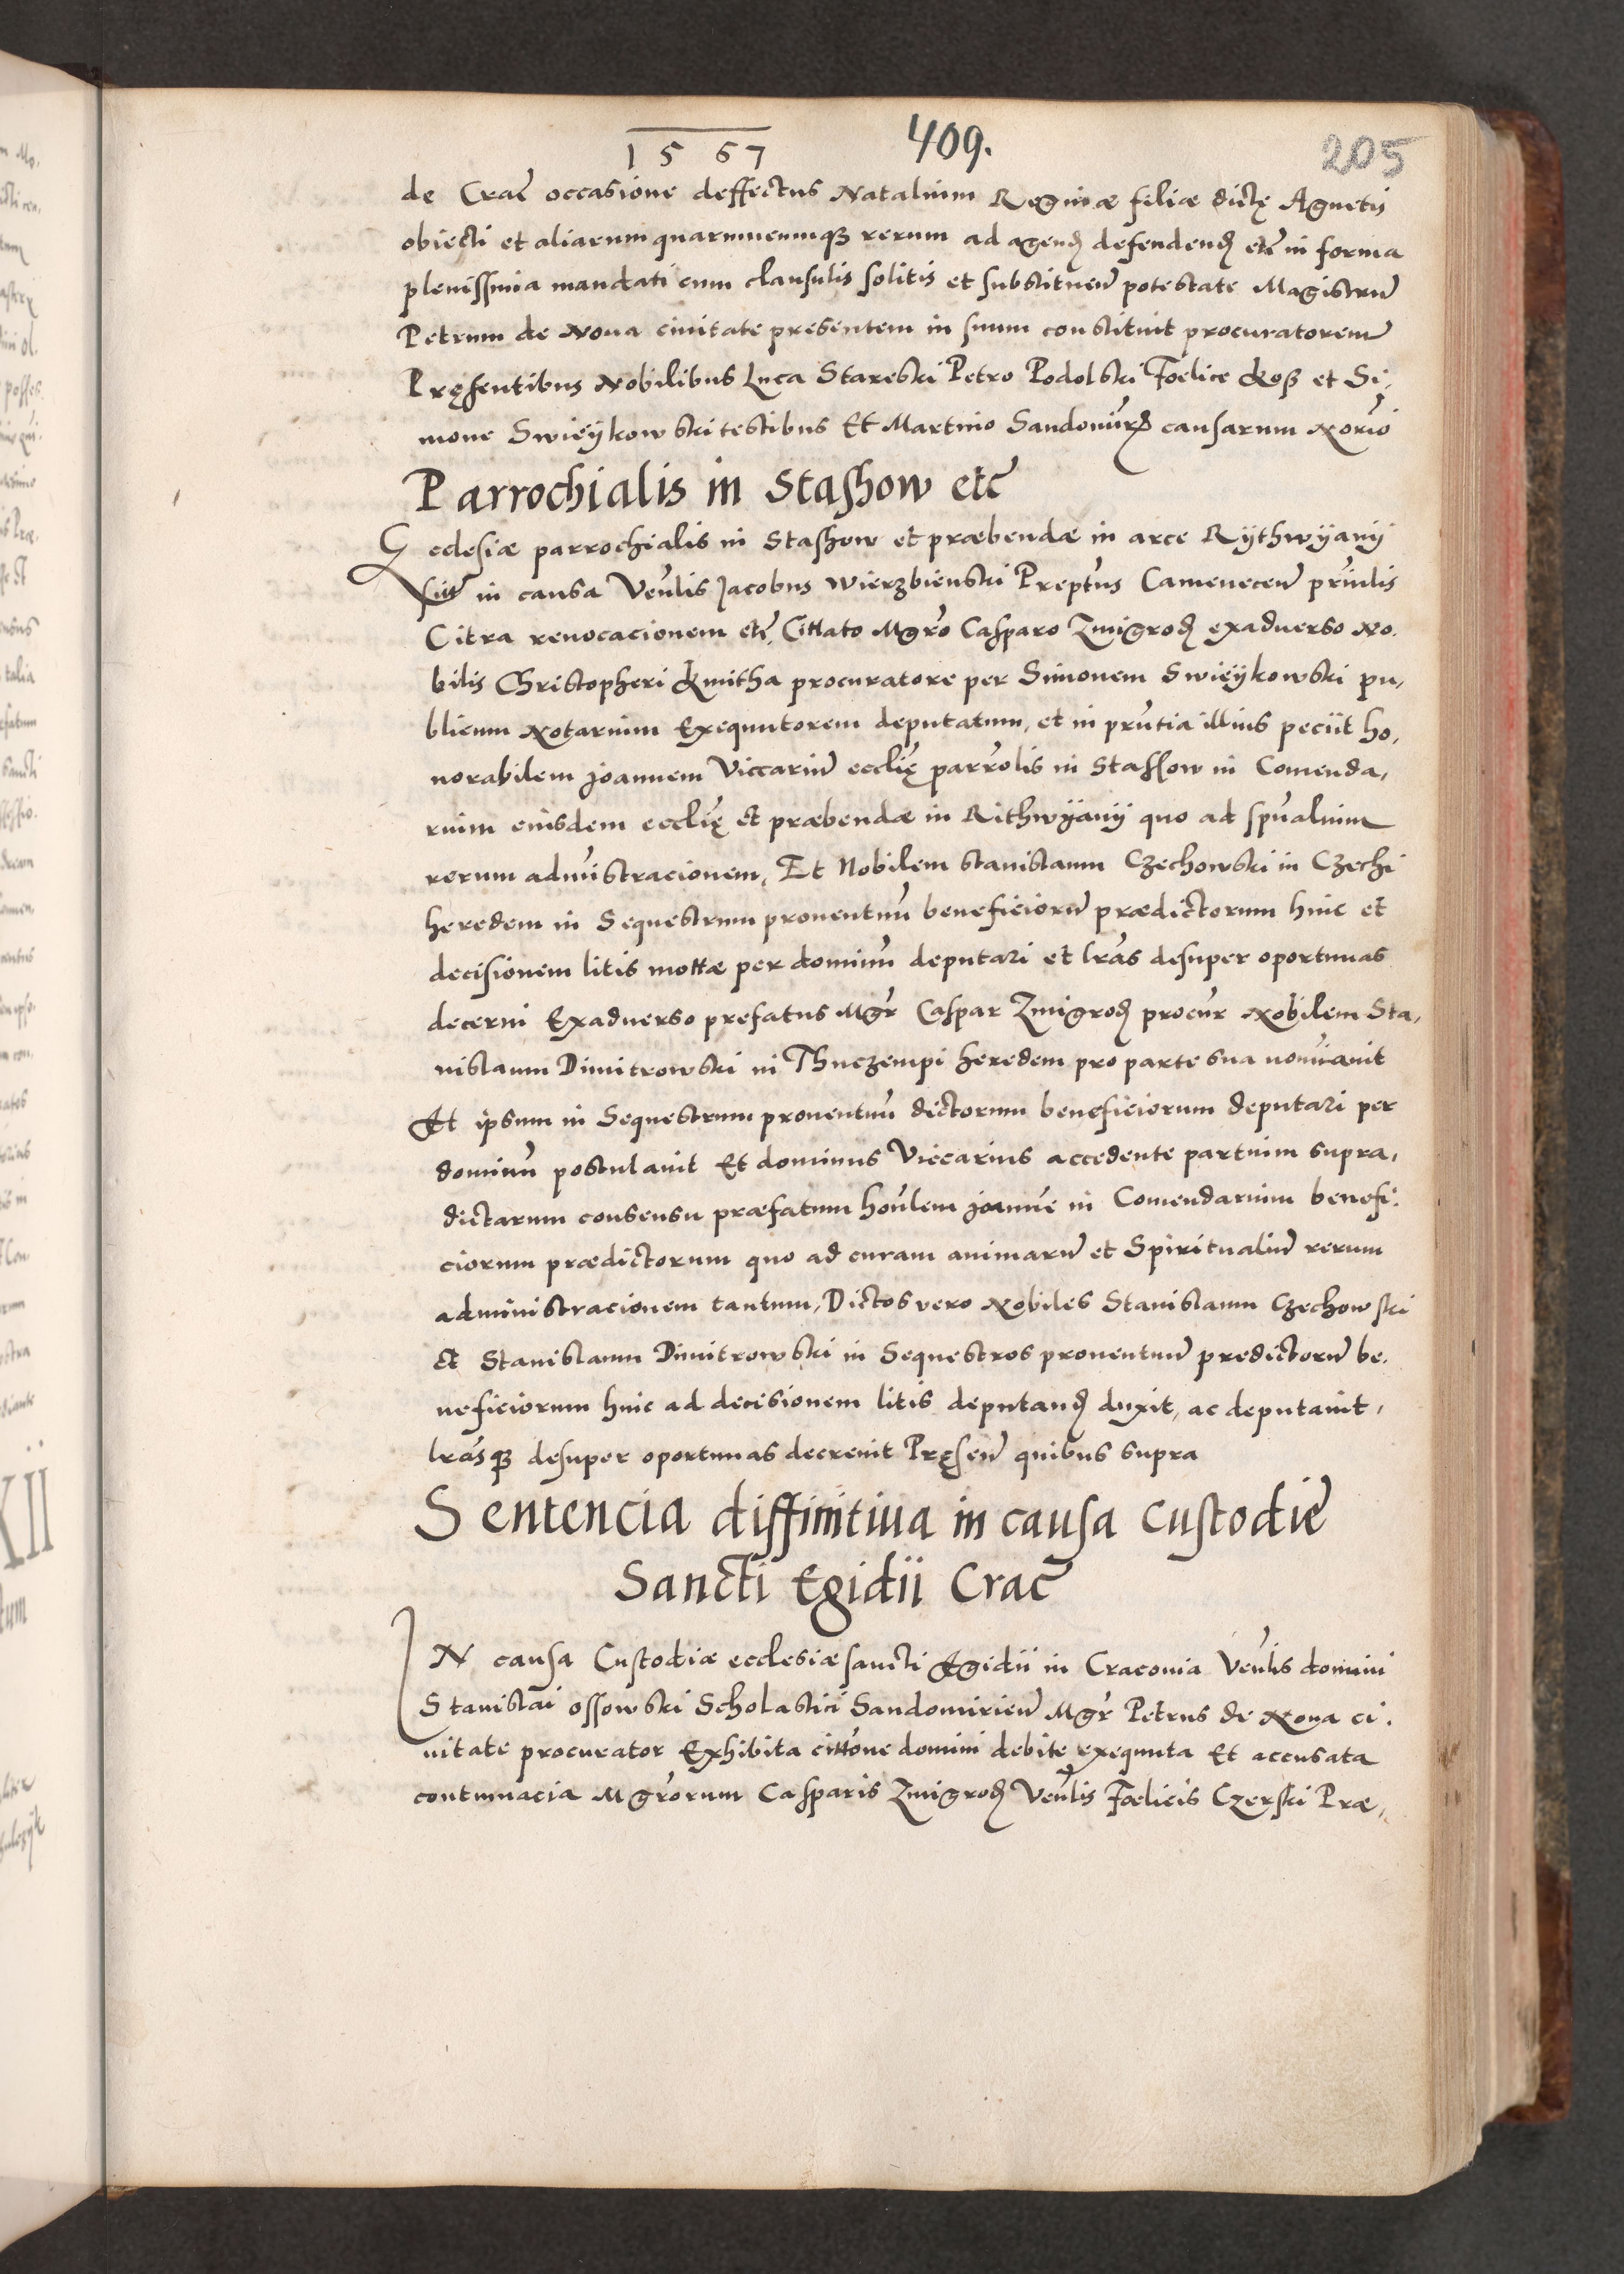 1567
409.
205
de Crac̃ occasione deffectus Natalium Reginæ filiæ dictę Agnetis
obiecti et aliarum quarumcumqꝫ rerum ad agend̨ defendend̨ etc̃ in forma
plenissima mandati cum clausulis solitis et substituen̄ potestate Magistrū
Petrum de Noua ciuitate presentem in suum constituit procuratorem
Pręsentibus Nobilibus Luca Stareski Petro Podolski Foelice et Si,
mone Swieÿkowski testibus Et Martino Sandomir̄ causarum No̅rio
Parrochialis in Stashow etc̃
Ecclesiæ parrochialis in Stashow et præbendæ in arce Rÿthwÿanÿ
in causa Ven̄lis Jacobus Wierzbienski Prep̄tus Camenecen̄ prin̄lis
Citra reuocacionem etc̃. Cittato Mgr̄o Casparo Zmigrod̨ exaduerso No.
bilis Christopheri Kmitha procuratore per Simonem Swieÿkowski pu,
blicum Notarium Exequutorem deputatum, et in pr̄ntia illius peciit ho,
norabilem Joannem Viccariū eccl̄ię parr̄olis in Stashow in Comenda,
rium eiusdem eccl̄ię et præbendæ in Rithwÿanÿ quo ad sp̄ualium
rerum adm̄istracionem, Et Nobilem Stanislaum Czechowski in Czechi
heredem in Sequestrum prouentuū beneficiorū prædictorum hinc et
decisionem litis mottæ per dominū deputari et lr̄as desuper oportunas
decerni Exaduerso prefatus Mgr̄ Caspar Zmigrod̨ procur̄ Nobilem Sta,
nislaum Dimitrowski in Thuczempi heredem pro parte sua nōiauit
Et ipsum in Sequestrum prouentuū dictorum beneficiorum deputari per
dominū postulauit Et dominus Viccarius accedente partium supra,
dictarum consensu præfatum hon̄lem Joannē in Comendarium benefi:
ciorum prædictorum quo ad curam animarū et Spiritualiū rerum
administracionem tantum, Dictos vero Nobiles Stanislaum Czechowski
et Stanislaum Dimitrowski in Sequestros prouentuū predictorū be.
neficiorum hinc ad decisionem litis deputand̨ duxit, ac deputauit,
lr̄asqꝫ desuper oportunas decreuit Pręsen̄ quibus supra
Sentencia diffinitiua in causa Custodiē
Sancti Egidii Crac̃
IN causa Custodiæ ecclesiæ sancti Egidii in Craconia Ven̄lis domini
Stanislai Ossowski Scholastici Sandomirien̄ Mgr̄ Petrus de Noua ci.
uitate procurator Exhibita citt̄one domini debite exequuta Et accusata
contumacia Mgr̄orum Casparis Zmigrod̨ Ven̄lis Fœlicis Czerski Præ,